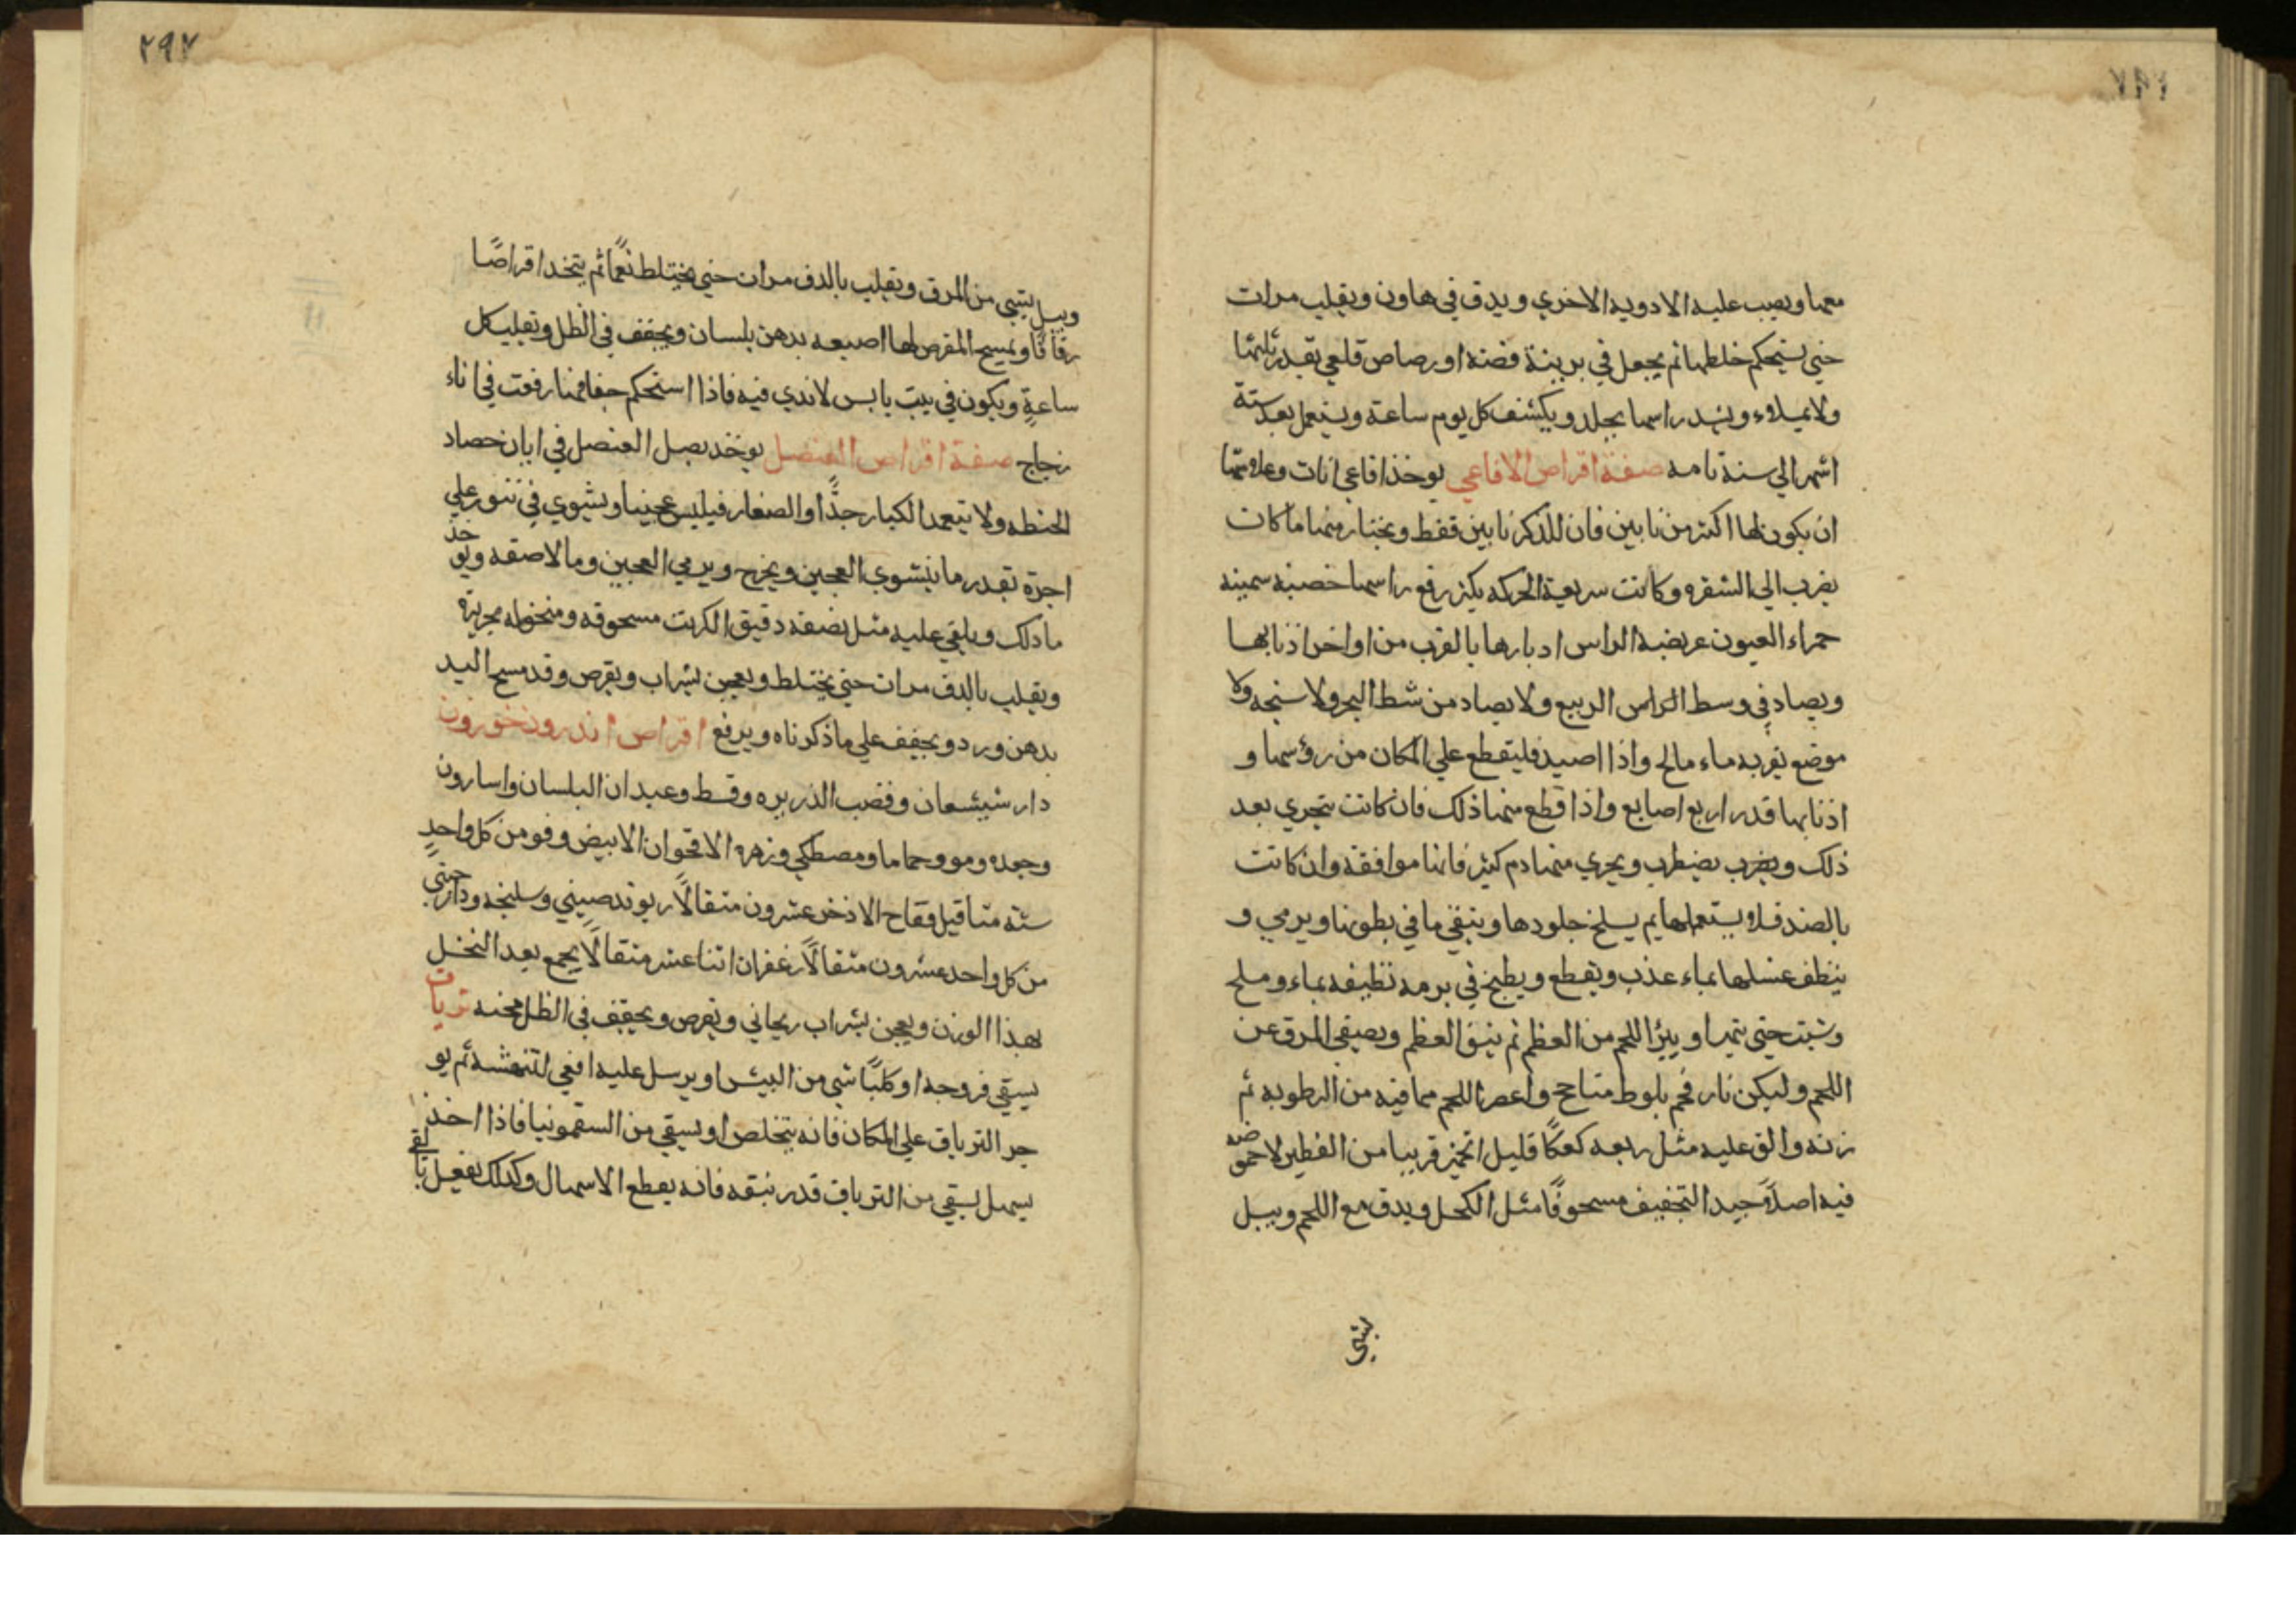 معها ويصب عليه الادويه الاخري ويدق في هاون ويقلب مرات
حتي يستحكم خلطها ثم يجعل في برينة فضة او رصاص قلعي بقدر ثلثها
ولا يملاء ويشد راسها بجلد ويكشف كل يوم ساعة ويستعمل بعد ستة
اشهر الي سنة تامه صفة اقراص الافاعي يوخذ افاعي اناث وعلامتها
ان يكون لها اكثر من نابين فان للذكر نابين فقط ويختار منها ما كان
يضرب الي الشقره وكانت سريعة الحركه يكثر رفع راسها خصبه سمينه
حمراء العيون عريضة الراس ادبارها بالقرب من اواخر اذنابها
ويصاد في وسط الراس الربيع ولا يصاد من شط البحر ولا سنجه ولا
موضع يقربه ماء مالح واذا اصيد فليقطع علي المكان من رؤسها و
اذنابها قدر اربع اصابع واذا قطع منها ذلك فان كانت تتجري بعد
ذلك ويضرب يضطرب ويجري منها دم كثير فانها موافقة وان كانت
بالضد فلا ويستعملها يم يسلخ جلودها وينقي ما في بطونها ويرمي و
ينظف غسلها بماء عذب ويقطع ويطبخ في برمه نظيفه بماء وملح
وشبت حتي يتهرا ويبرا اللحم من العظم ثم ينقي العظم ويصفي المرق عن
اللحم وليكن نار فحم بلوط متاجج واعصر اللحم مما فيه من الرطوبه ثم
زنه والق عليه مثل ربعه كعكًا قليل الخمير قريبا من الفطير لا حموضه
فيه اصلاً جيد التجفيف مسحوقًا مثل الكحل ويدق مع اللحم ويبل
بشي
٢٩٧
ويبل بشي من المرق ويقلب بالدق مرات حتي يختلط نعمًا ثم يتخد اقراصًا
رقاقًا ويمسح المقرص لها اصبعه بدهن بلسان ويجفف في الظل وتقلب كل
ساعةٍ ويكون في بيت يابس لا ندي فيه فاذا استحكم جفافها رفعت في اناء
زجاج صفة اقراص العنصل يوخذ بصل العنصل في ابان حصاد
الحنطه ولا يتعمد الكبار جدًّا او الصغار فيلبس عجينا ويشوي في تنور علي
اجرّة بقدر ما ينشوي العجين ويخرج ويرمي العجين وما لاصقه ويوخذ
ما ذلك ويلقي عليه مثل نصفه دقيق الكرنت مسحوقه ومنخوله بحريرة
ويقلب بالدق مرات حتي يختلط ويعجن بشراب ويقرص وقد مسح اليد
بدهن ورد ويجفف علي ما ذكرناه ويرفع اقراص اندرون خورون
دار شيشعان وقصب الذريره وقسط وعيدان البلسان واسارون
وجعده ومو وحماما ومصطكي وزهره الاقحوان الابيض وفو من كل واحدٍ
ستة مثاقيل فقاح الاذخر عشرون مثقالًا ريوند صيني وسليخه ودار صيني
من كل واحد عشرون مثقالًا زعفران اثنا عشر مثقالًا يجمع بعد النخل
بهذا الوزن ويعجن بشراب ريحاني ويقرص ويجفف في الظل محنه ترياق
يسقي فروجه او كلبًا شي من البيش او يرسل عليه افعي لتنهشه ثم يو
جر الترياق علي المكان فانه يتخلص او يسقي من السقمونيا فاذا اخذ
يسهل يسقي من الترياق قدر نبقه فانه يقطع الاسهال وكذلك يفعل بالقي